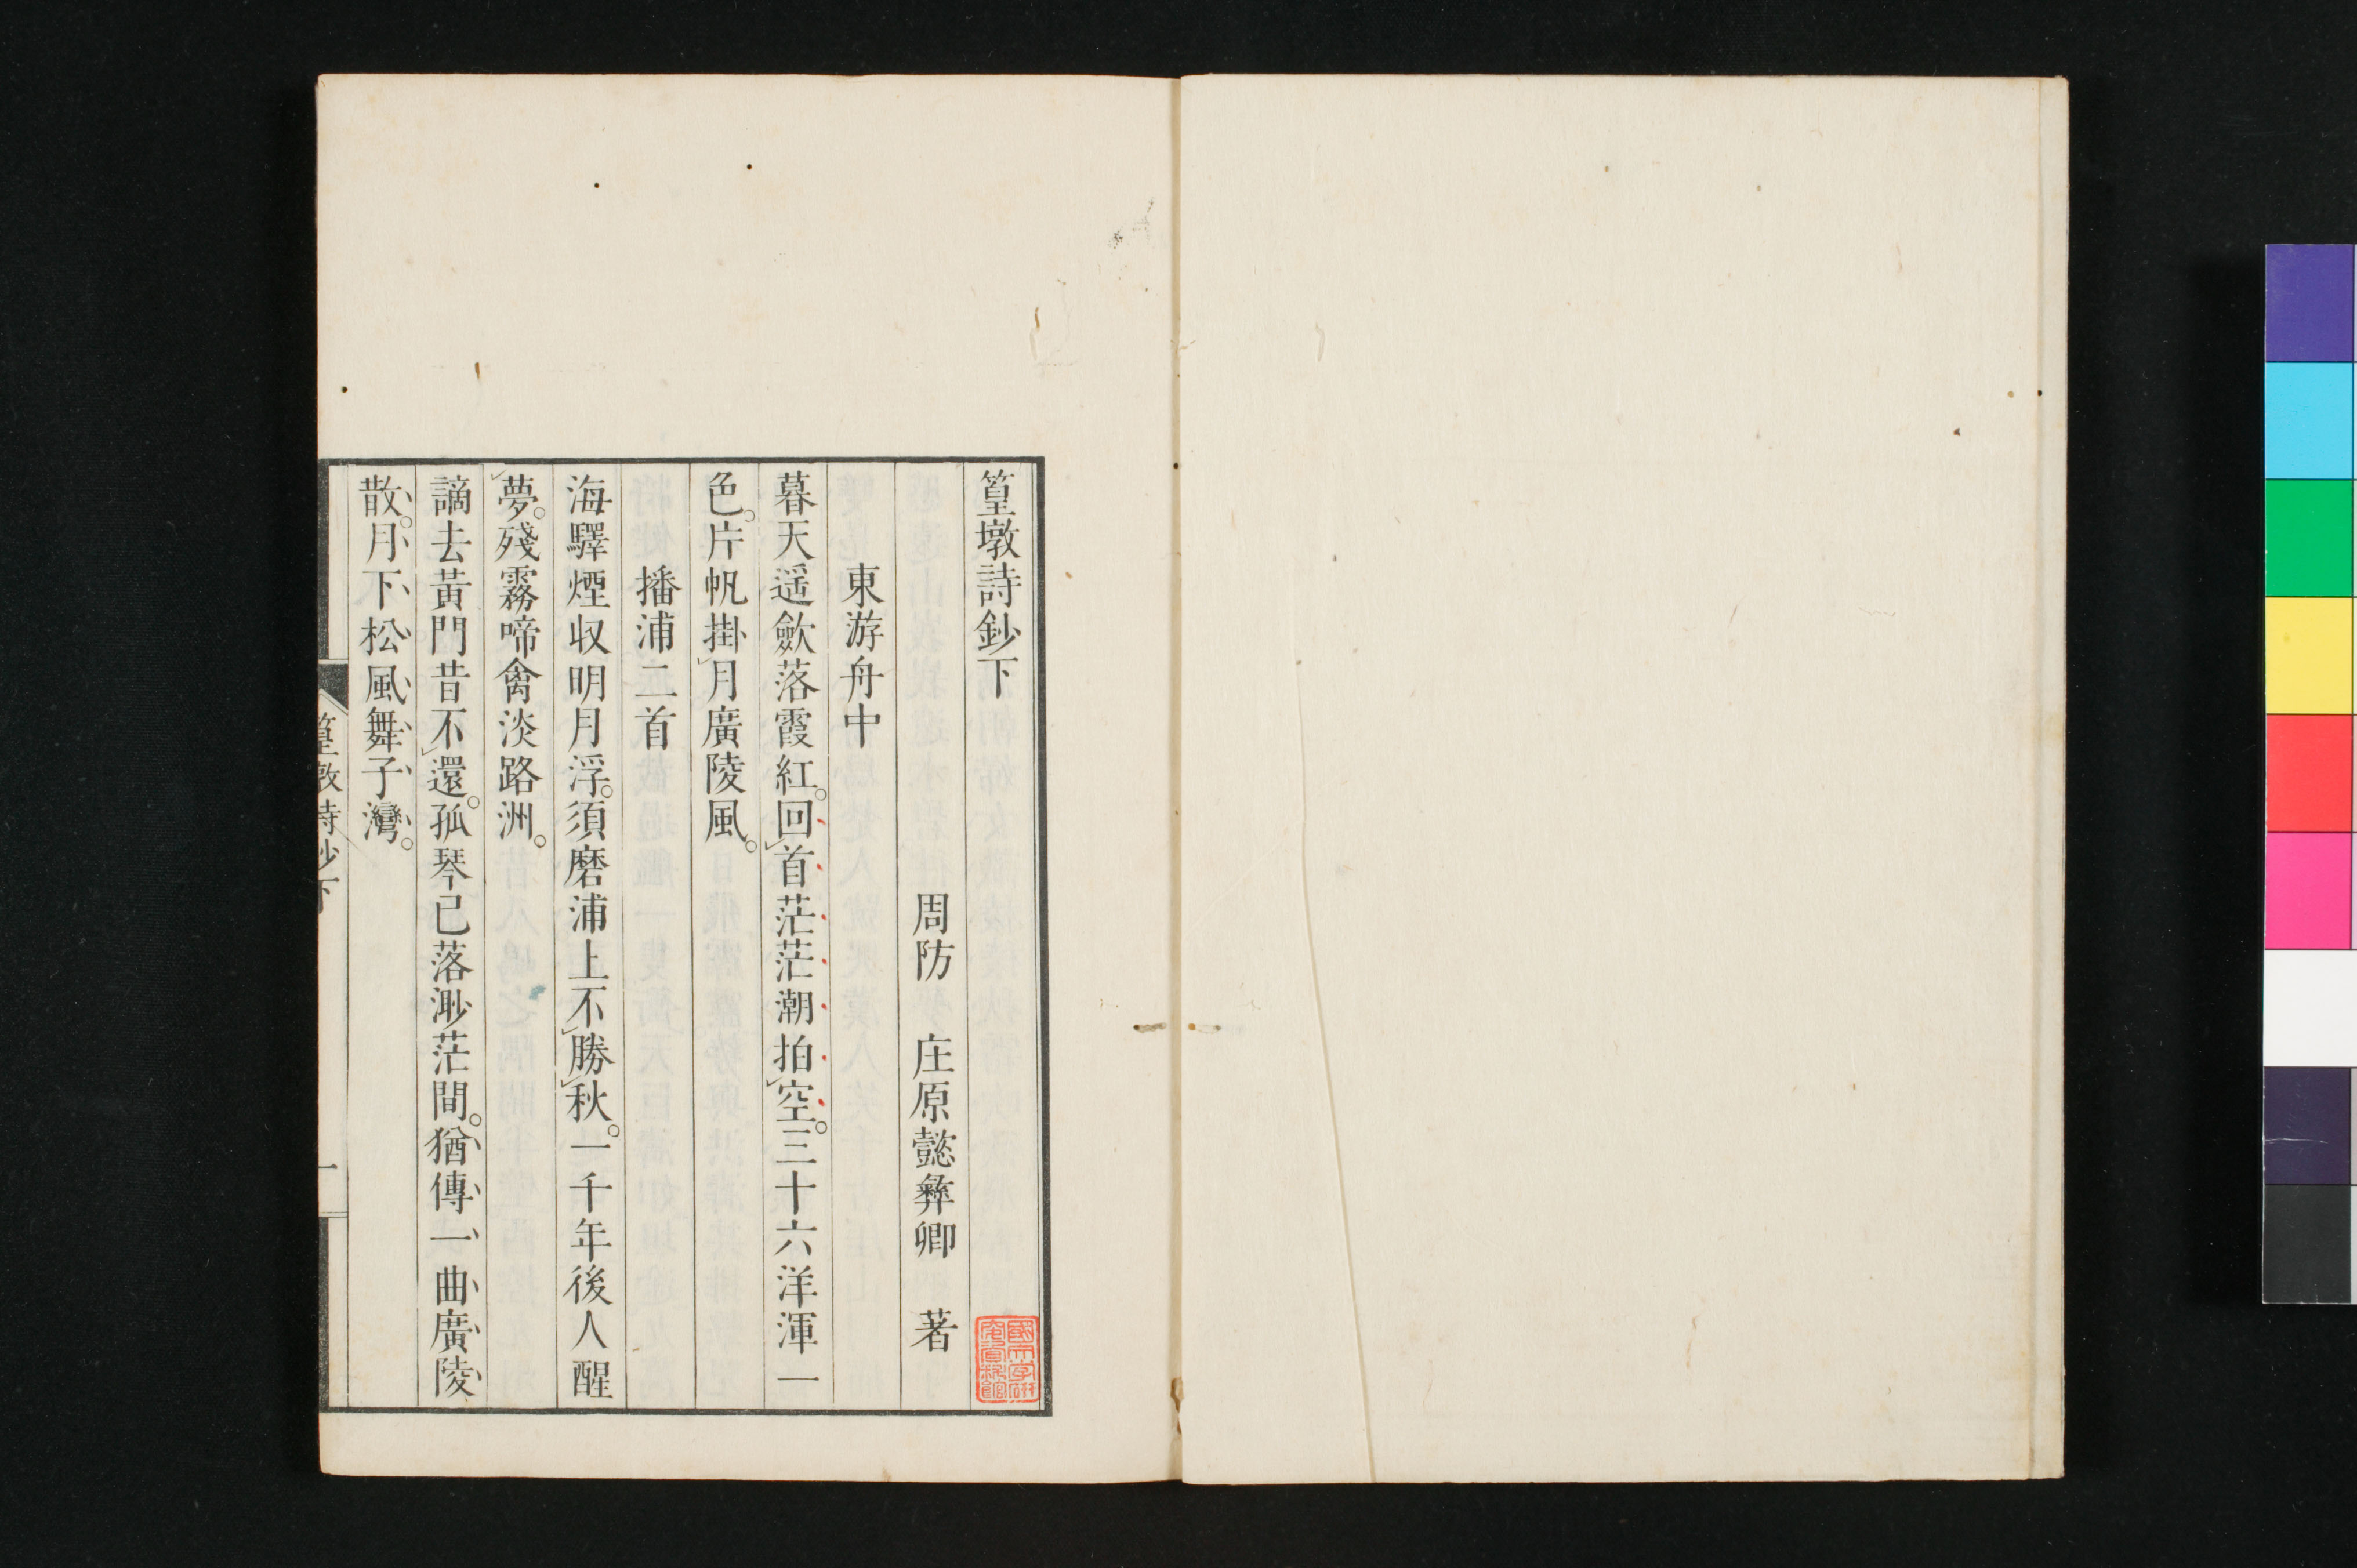 篁墩詩鈔下
周防 庄原懿彝卿 著
東游舟中
暮天遥歛落霞紅。回首茫茫潮拍空。三十六洋渾一
色。片帆掛月廣陵風。
播浦二首
海驛煙収明月浮。須磨浦上不勝秋。一千年後人醒
夢。殘霧啼禽淡路洲。
謫去黃門昔不還。孤琴已落渺茫間。猶傳一曲廣陵
散。月下松風舞子灣。
篁墩詩鈔下
一